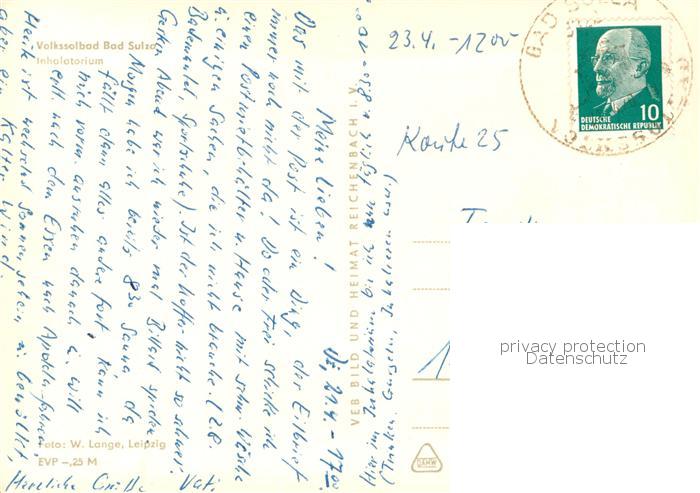 Volkssolbad Bad Sulza
Inhalatorium
23.4. -1200
BAD SULZA
DEUTSCHE
DEMOKRATISCHE REPUBLIK
10
Karte 25
Di, 21.4. - 1700
Meine Lieben!
Das mit der Post ist ein Ding, der Eilbrief
immer noch nicht da! Donnerstag schicke ich
einen Postmietbehälter n. Hause mit schm. Wäsche
u. einigen Sachen, die ich nicht brauche. (z.B.
Bademantel, Sportschuhe). Ist der Koffer nicht so schwer.
Gestern Abend war ich wieder mal Billard spielen.
Morgen habe ich bereits 830 Sauna, da
fällt dann alles andere fort, kann ich
mich vorm. ausruhen danach u. will
evtl. nach dem Essen nach Apolda fahren.
Heute ist wechselnd Sonnenschein u. bewölkt,
aber ein kalter Wind.
Herzliche Grüße Vati
Hier im Inhalatorium bin ich täglich v. 830-1000
(Trinken, Gurgeln, Inhalieren usw.)
VEB BILD UND HEIMAT REICHENBACH I. V.
Foto: W. Lange, Leipzig
EVP -,25 M
privacy protection
Datenschutz